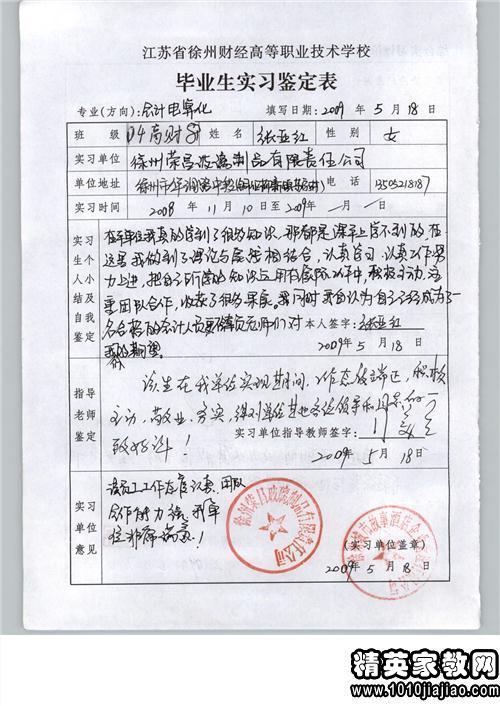 江苏省徐州财经高等职业技术学校
毕业生实习鉴定表
专业(方向):会计电算化 填写日期:2009年5月18日
班级 04高财 姓名 张亚红 性别 女
实习单位 徐州荣昌玻璃制品有限责任公司
单位地址 徐州市 电话
实习时间 2008年11月10日至2009年 月 日
实习生个人小结及自我鉴定
在单位我真的学到了很多知识,那都是课本上学不到的,在
这里我做到了理论与实践相结合,认真学习,认真工作,努
力上进,把自己所学的知识运用在实际工作中,积极主动,注
重团队合作,收获了很多果实。我同时我自认为自己已经成为了一
名合格的会计人员 老师们对
我的期望
本人签字:张亚红
2009年5月18日
指导老师鉴定
该生在我单位实习期间,工作态度端正,积极
主动,敬业,务实,得到单位其他各位领导和同事的一
致好评!
实习单位指导教师签字:
2009年5月18日
实习单位意见
该员工工作态度认真,团队
合作能力强,我单
位非常满意!
徐州荣昌玻璃制品有限责任公司
(实习单位盖章)
2009年5月18日
精英家教网
www.1010jiajiao.com